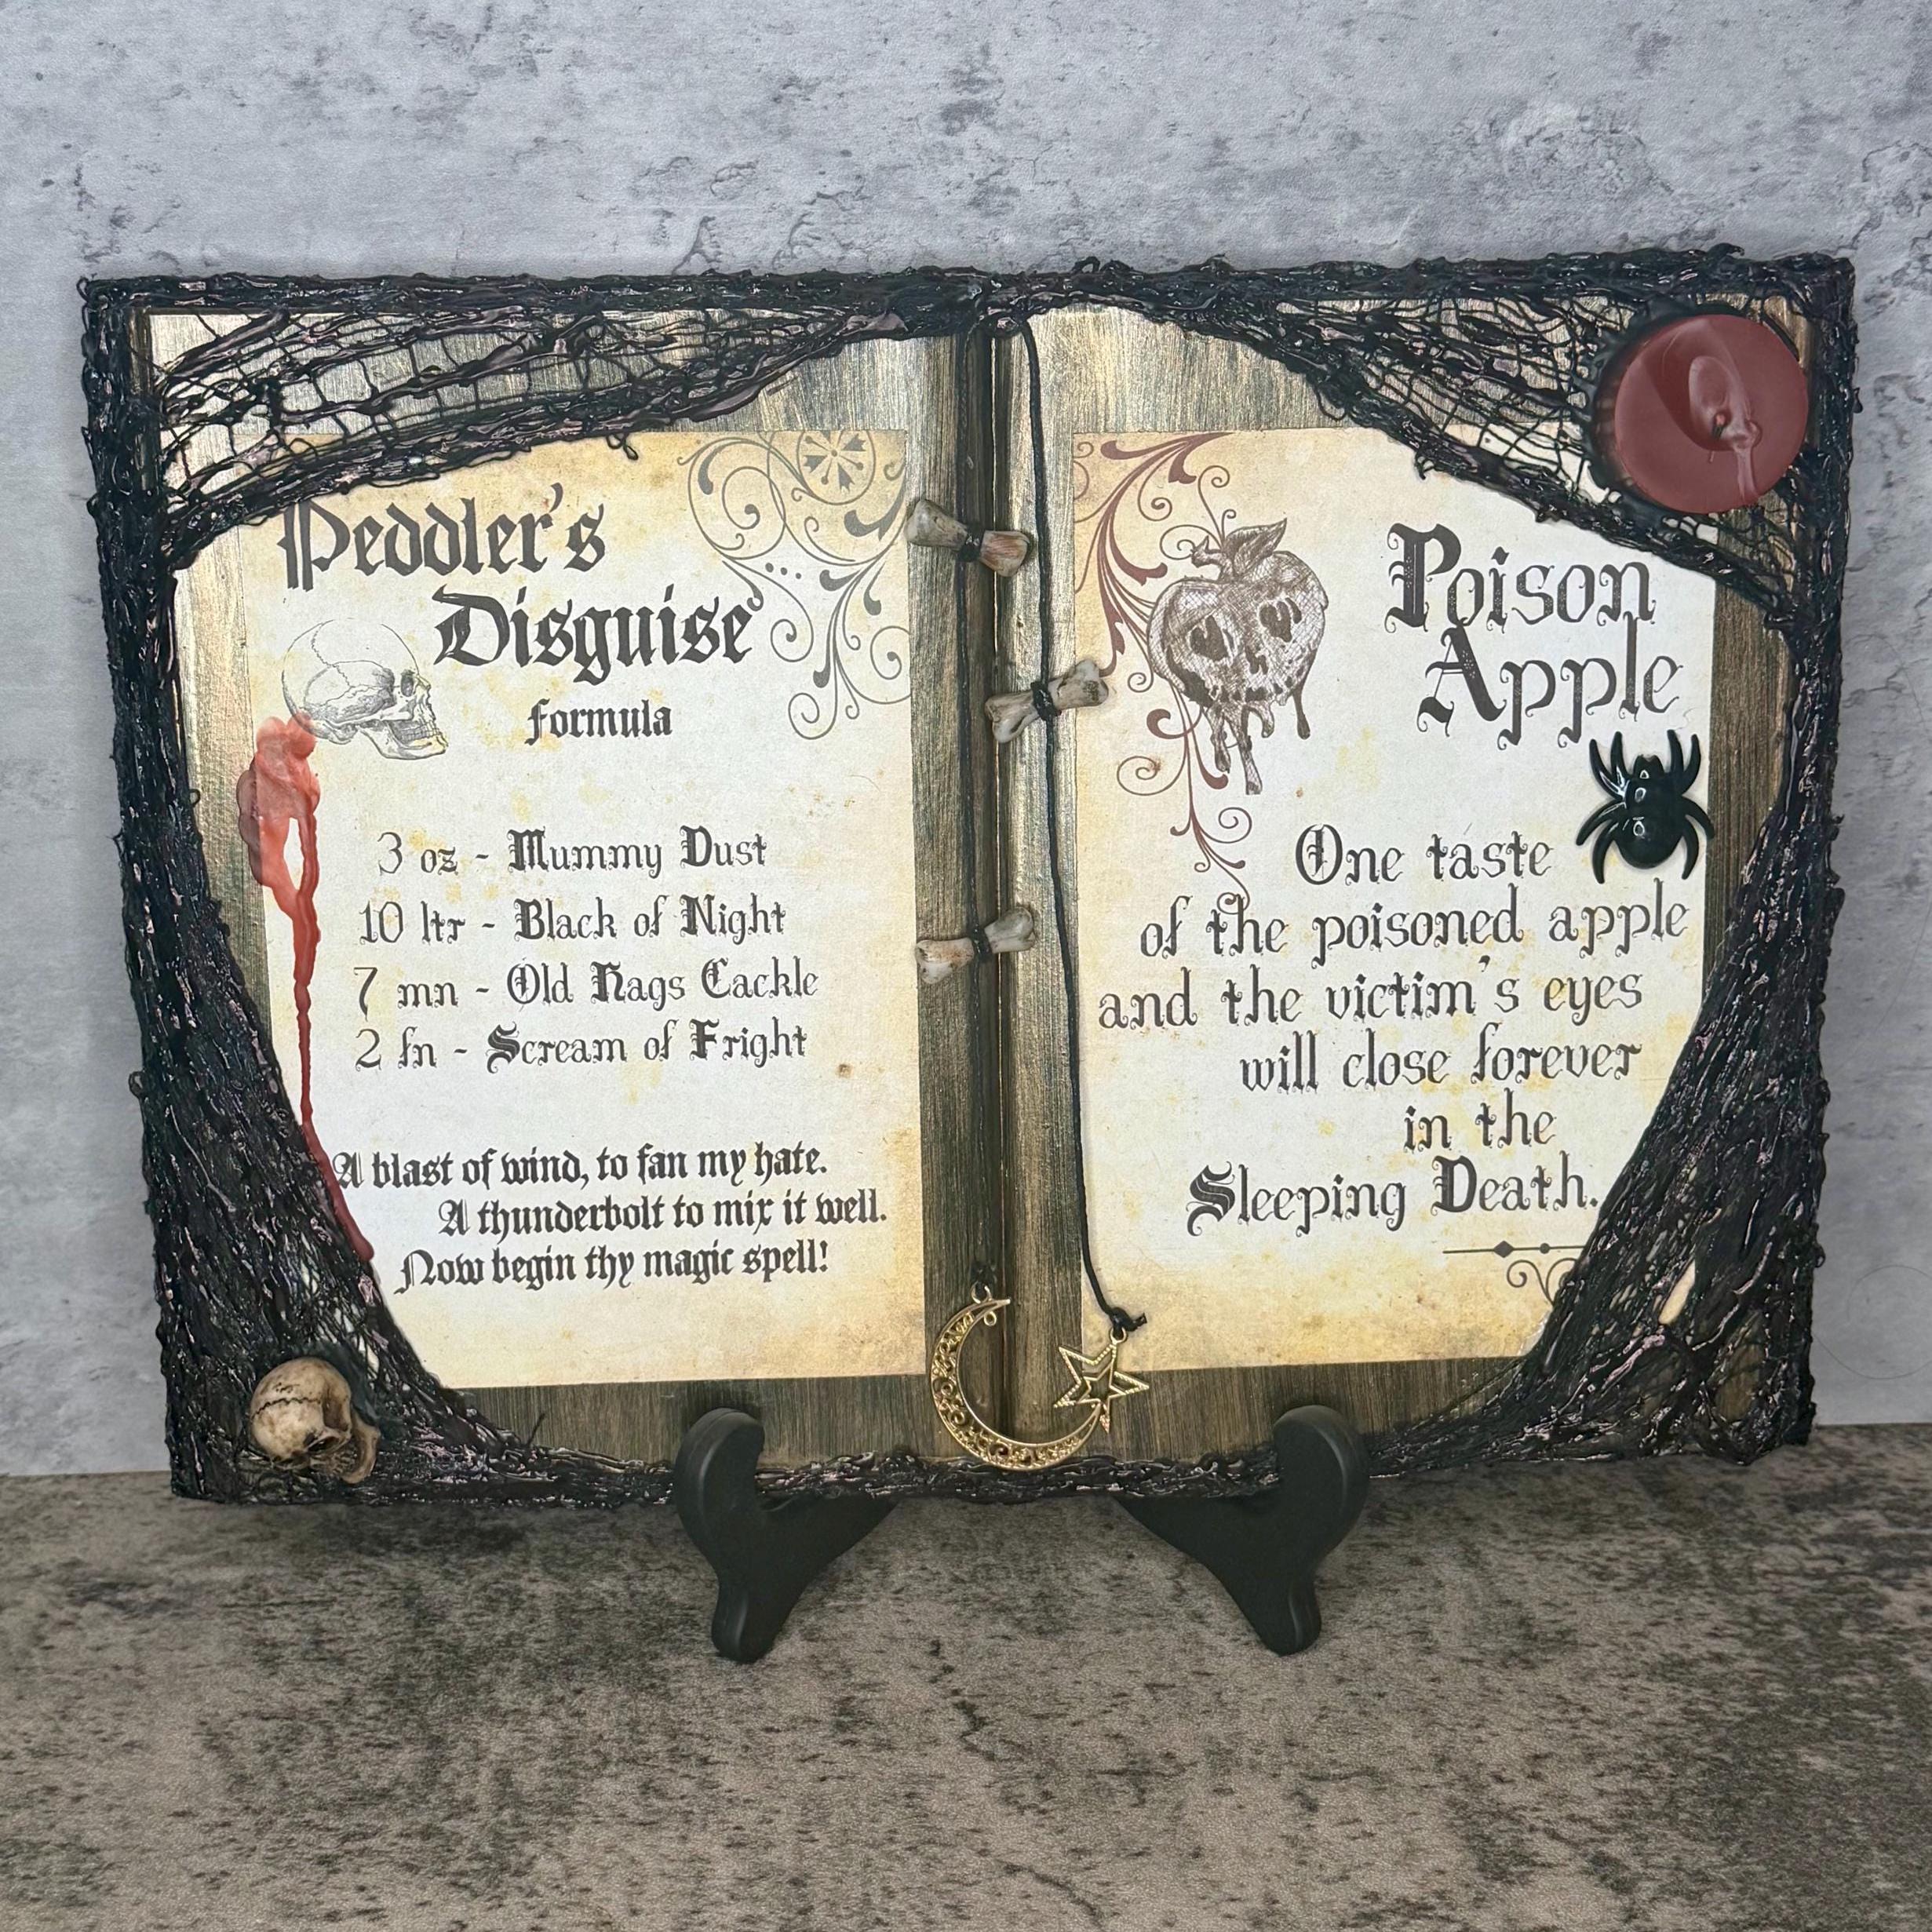 Peddler's
Disguise
formula
3 oz - Mummy Dust
10 ltr - Black of Night
7 mn - Old Hags Cackle
2 fn - Scream of Fright
A blast of wind, to fan my hate.
A thunderbolt to mix it well.
Now begin thy magic spell!
Poison
Apple
One taste
of the poisoned apple
and the victim's eyes
will close forever
in the
Sleeping Death.